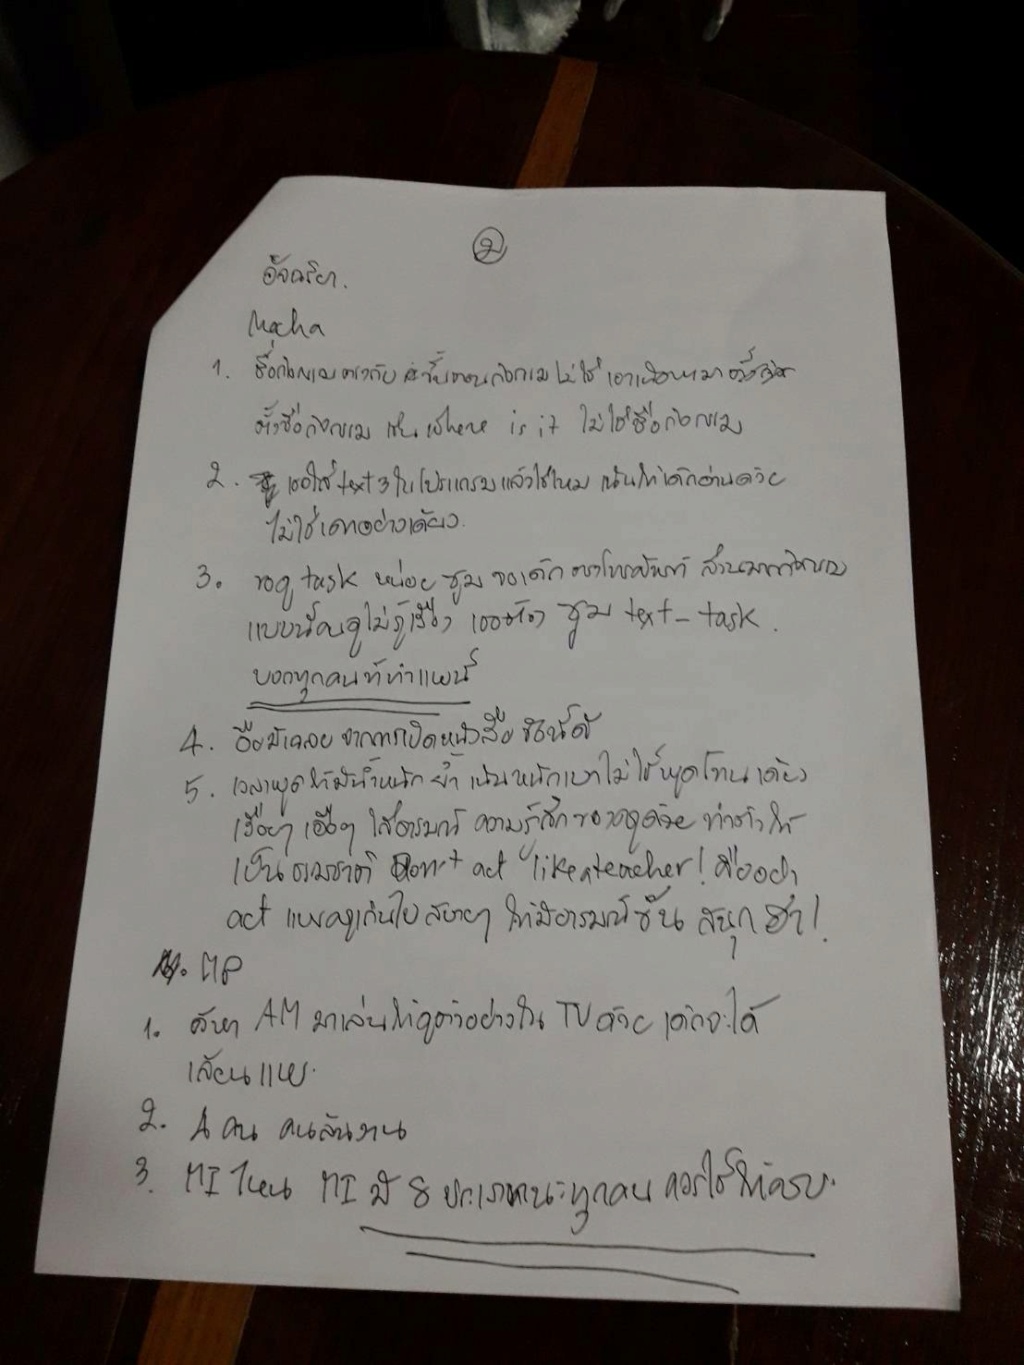 ๒
อัจฉริยา.
Mocha
1. ชื่อกิจกรรมตรงกับ ขั้นตอนกิจกรรม ไม่ใช่ เอาเนื้อหามา
ตั้งชื่อกิจกรรม เช่น Where is it ไม่ใช่ชื่อกิจกรรม
2. เธอใส่ text 3 ในโปรแกรมแล้วใช่ไหม เน้นให้เด็กอ่านด้วย
ไม่ใช่เดาอย่างเดียว.
3. ขอดู task หน่อย ซูม จอเด็ก จอโทรศัพท์ ส่วนมากกิจกรรม
แบบนี้คนดูไม่รู้เรื่อง เธอต้อง ซูม text - task.
บอกทุกคนที่ทำแผนนี้
4. สื่อมีเฉลย จากการเปิดหนังสือ วิธีนี้ดี
5. เวลาพูดให้มีน้ำหนัก ย้ำ เน้นหนักเบาไม่ใช่พูดโทนเดียว
เรื่อยๆ เอื่อยๆ ใส่อารมณ์ ความรู้สึกของครูด้วย ทำตัวให้
เป็นธรรมชาติ Don't act like a teacher! คืออย่า
act แบบครูเกินไป สบายๆ ให้มีอารมณ์ขัน สนุก ฮา!
MP
1. ค้นหา AM มาเล่นให้ดูตัวอย่างใน TV ด้วย เด็กจะได้
เลียนแบบ.
2. 4 คน คนล้นงาน
3. MI ไหน MI มี 8 ประเภทนะทุกคน ควรใช้ให้ครบ.